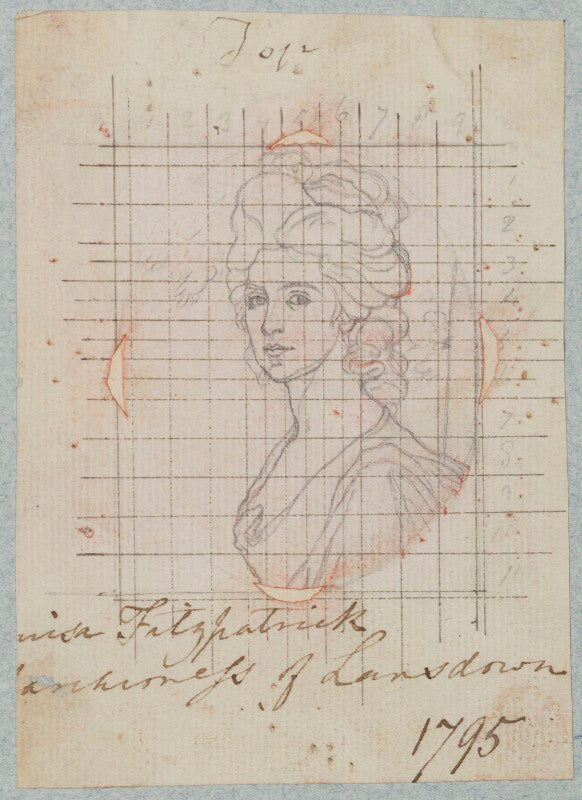 Top
1 2 3 4 5 6 7 8 9
1
2
3
4
6
7
8
9
10
11
uisa Fitzpatrick
archioness of Lansdown
1795